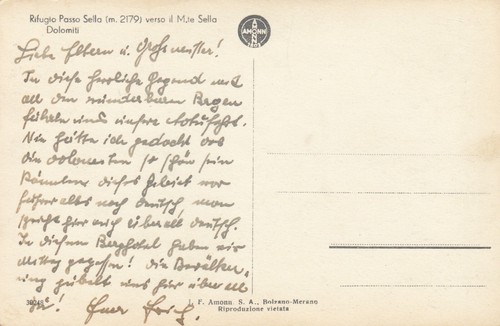 Rifugio Passo Sella (m. 2179) verso il M.te Sella
Dolomiti
AMONN
Liebe Eltern u. Großmutter!
In diese herrliche Gegend mit
all den wunderbaren Bergen
führte uns unsere Autofahrt.
Nie hätte ich gedacht das
die Dolomiten so schön sein
könnten. Dieses Gebiet war
früher alles noch deutsch, man
spricht hier auch überall deutsch.
In diesem Berghotel haben wir
Mittag gegessen! Die Bevölker-
ung jubelt uns hier überall
zu! Euer Erich.
J. F. Amonn S. A., Bolzano-Merano
Riproduzione vietata